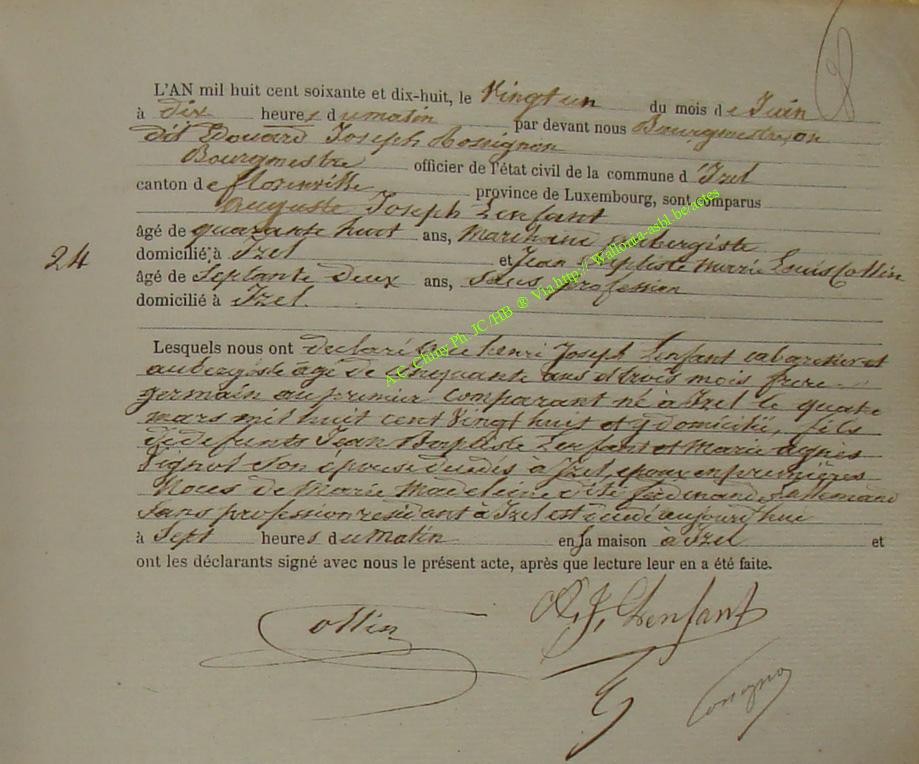 L'AN mil huit cent soixante et dix-huit, le Vingt un du mois de Juin
à dix heures du matin par devant nous Bourgmestre, on
dit Douard Joseph Rossignon
Bourgmestre officier de l'état civil de la commune d'Izel
canton de florenville province de Luxembourg, sont comparus
Auguste Joseph Lenfant
âgé de quarante huit ans, Marchand aubergiste
24
domicilié à Izel et Jean Baptiste Marie Louis Collin
âgé de Septante deux ans, Sans profession
domicilié à Izel
Lesquels nous ont declaré que henri Joseph Lenfant cabaretier et
aubergiste âgé de cinquante ans et trois mois frere
germain au premier comparant né à Izel le quatre
mars mil huit cent Vingt huit et y domicilié, fils
de defunts Jean Baptiste Lenfant et Marie agnès
son épouse décédés à Izel, epoux en premières
Noces de Marie Madeleine dite ferdinande Lallemand
sans profession residant à Izel est décédé aujourd'hui
à Sept heures du Matin en sa maison à Izel et
ont les déclarants signé avec nous le présent acte, après que lecture leur en a été faite.
Collin A. J. Lenfant
A.C. Chiny Ph. JC/HB ® Via http://Wallonia-asbl.be/actes